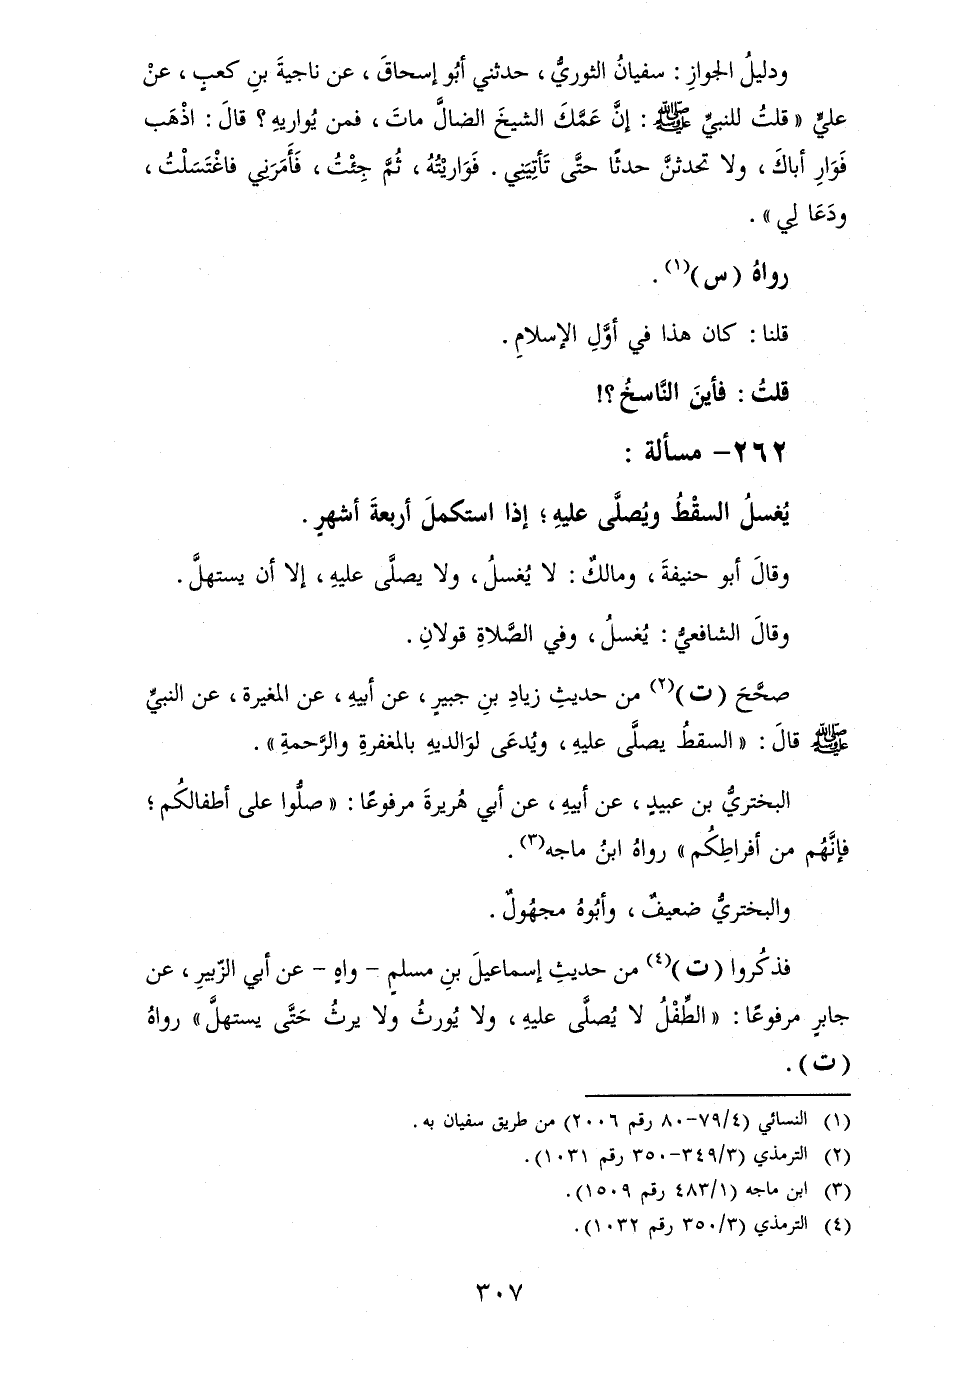 ودليلُ الجوازِ : سفيانُ الثوريُّ ، حدثني أبُو إسحاقَ ، عن ناجيةَ بنِ كعبٍ ، عنْ
عليٍّ « قلتُ للنبيِّ ﷺ : إنَّ عَمَّكَ الشيخَ الضالَّ ماتَ ، فمن يُواريهِ ؟ قالَ : اذْهَب
فَوَارِ أباكَ ، ولا تحدثنَّ حدثًا حتَّى تَأتِيَنِي . فَوَاريْتُهُ ، ثُمَّ جِئْتُ ، فَأَمَرَنِي فاغْتَسَلْتُ ،
ودَعَا لِي » .
رواهُ ( س )(١) .
قلنا : كان هذا في أوَّلِ الإسلامِ .
قلتُ : فأينَ النَّاسخُ ؟!
٢٦٢- مسألة :
يُغسلُ السقْطُ ويُصلَّى عليهِ ؛ إذا استكملَ أربعةَ أشهرٍ .
وقالَ أبو حنيفةَ ، ومالكٌ : لا يُغسلُ ، ولا يصلَّى عليهِ ، إلا أن يستهلَّ .
وقالَ الشافعيُّ : يُغسلُ ، وفي الصَّلاةِ قولانِ .
صحَّحَ ( ت )(٢) من حديثِ زيادِ بنِ جبيرٍ ، عن أبيهِ ، عن المغيرة ، عن النبيِّ
ﷺ قالَ : « السقطُ يصلَّى عليهِ ، ويُدعَى لوَالديهِ بالمغفرةِ والرَّحمةِ » .
البختريُّ بن عبيدٍ ، عن أبيهِ ، عن أبي هُريرةَ مرفوعًا : « صلُّوا على أطفالكُم ؛
فإنَّهُم من أفراطِكُم » رواهُ ابنُ ماجه(٣) .
والبختريُّ ضعيفٌ ، وأبُوهُ مجهُولٌ .
فذكُروا ( ت )(٤) من حديثِ إسماعيلَ بنِ مسلمٍ - واهٍ - عن أبي الزّبيرِ ، عن
جابرٍ مرفوعًا : « الطِّفْلُ لا يُصلَّى عليهِ ، ولا يُورثُ ولا يرثُ حَتَّى يستهلَّ » رواهُ
( ت ) .
(١) النسائي (٧٩/٤-٨٠ رقم ٢٠٠٦) من طريق سفيان به .
(٢) الترمذي (٣٤٩/٣-٣٥٠ رقم ١٠٣١) .
(٣) ابن ماجه (٤٨٣/١ رقم ١٥٠٩) .
(٤) الترمذي (٣٥٠/٣ رقم ١٠٣٢) .
٣٠٧